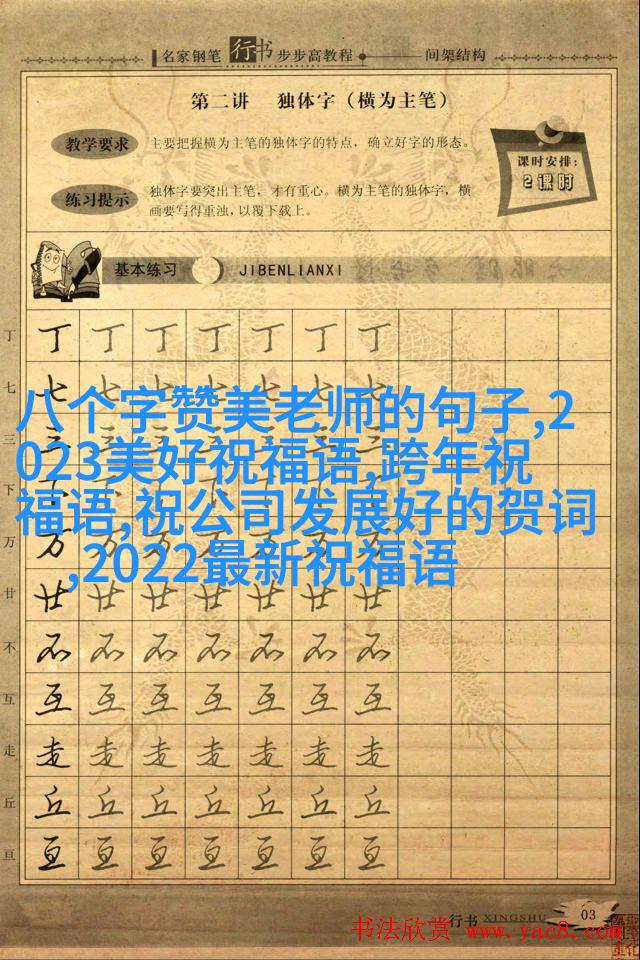 名家钢笔行书步步高教程 间架结构
第二讲 独体字（横为主笔）
教学要求
主要把握横为主笔的独体字的特点，确立好字的形态。
练习提示
独体字要突出主笔，才有重心。横为主笔的独体字，横
画要写得重浊，以覆下载上。
课时安排：
2课时
基本练习 JIBENLIANXI
丁 丁 丁 丁 丁 丁 丁 丁
七 七 七 七 七 七 七 七
八个字赞美老师的句子,2
023美好祝福语,跨年祝
福语,祝公司发展好的贺词
,2022最新祝福语
三 三
下
万 万 万 万 万 万 万 万
廿 廿 廿 廿 廿 廿 廿 廿
不 不 不 不 不 不 不 不
互 互 互 互 互 互 互 互
走 走 走 走 走 走 走 走
丘 丘 丘 丘 丘 丘 丘 丘
亘 亘 亘 亘 亘 亘 亘 亘
行书 XINGSHU 03
书法欣赏 www.yac8.com